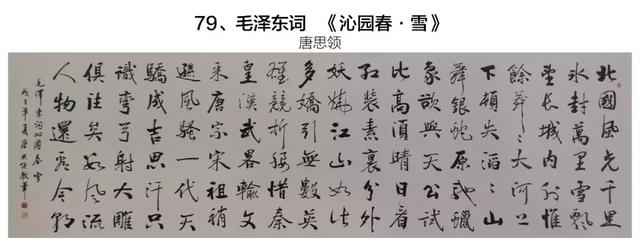 79、毛泽东词 《沁园春·雪》
唐思领
北國風光千里
冰封萬里雪飄
望長城内外惟
餘莽〻大河上
下頓失滔〻山
舞銀蛇原馳蠟
象欲與天公試
比高須晴日看
紅裝素裹分外
妖嬈江山如此
多嬌引無數英
雄競折腰惜秦
皇漢武略輸文
采唐宗宋祖稍
遜風騷一代天
驕成吉思汗只
識彎弓射大雕
俱往矣數風流
人物還看今朝
毛澤東詞沁園春 雪
年夏唐思領